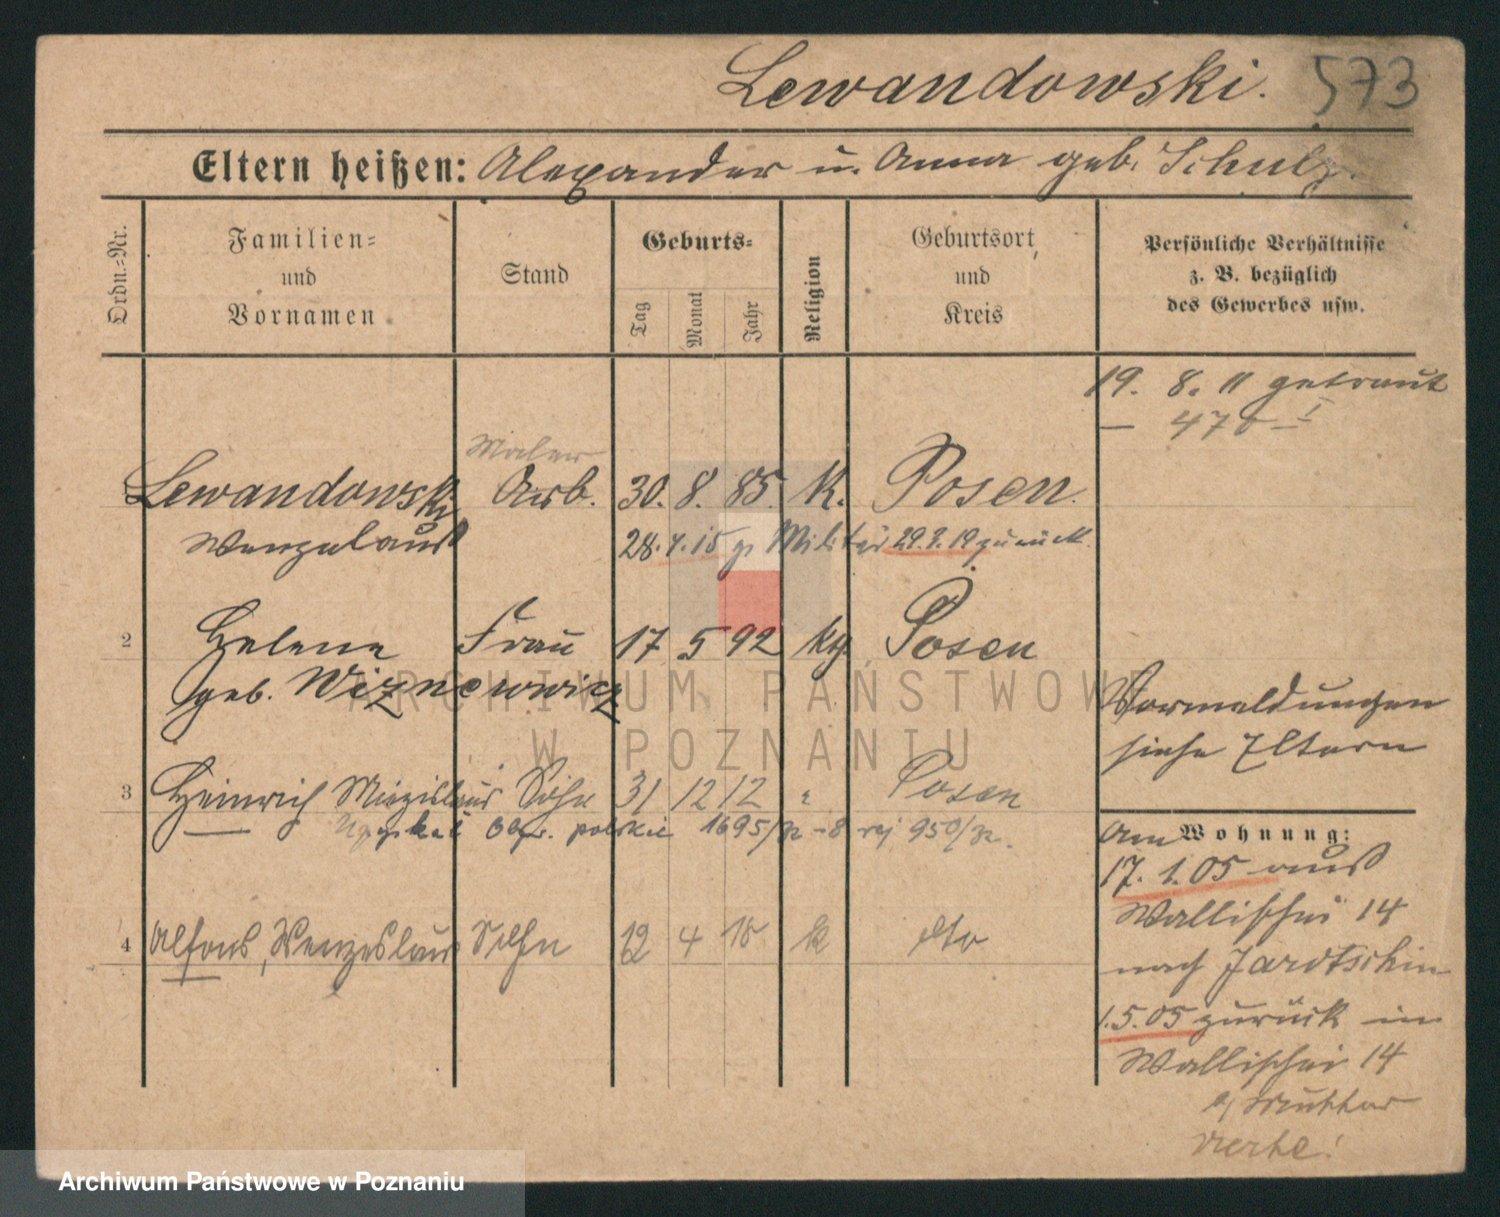 Lewandowski. 573
Eltern heißen: Alexander u. Anna geb. Schulz.
Ordn.-Nr.
Familien-
und
Vornamen
Stand
Geburts-
Tag
Monat
Jahr
Religion
Geburtsort
und
Kreis
Persönliche Verhältnisse
z. B. bezüglich
des Gewerbes usw.
19. 8. 11 getraut
Maler
Lewandowski Arb. 30. 8. 85. K. Posen.
Wenzelaus 28. 15 Militär 19 zurück
2 Helene Frau 17 5 92 kg Posen
geb.
Vormeldungen
siehe Eltern
3 Heinrich Miezislaus Sohn 31 12 12 " Posen
Uzyskał Obyw. polskie 1695/ 8 rej 950/
4 Alfons, Wenzeslaus Sohn 12 4 15 k dto
Am Wohnung:
17. 1. 05 aus
Wallischei 14
nach Jarotschin
1.5.05 zurück in
Wallischei 14
b/ Mutter
ARCHIWUM PAŃSTWOWE
W POZNANIU
Archiwum Państwowe w Poznaniu